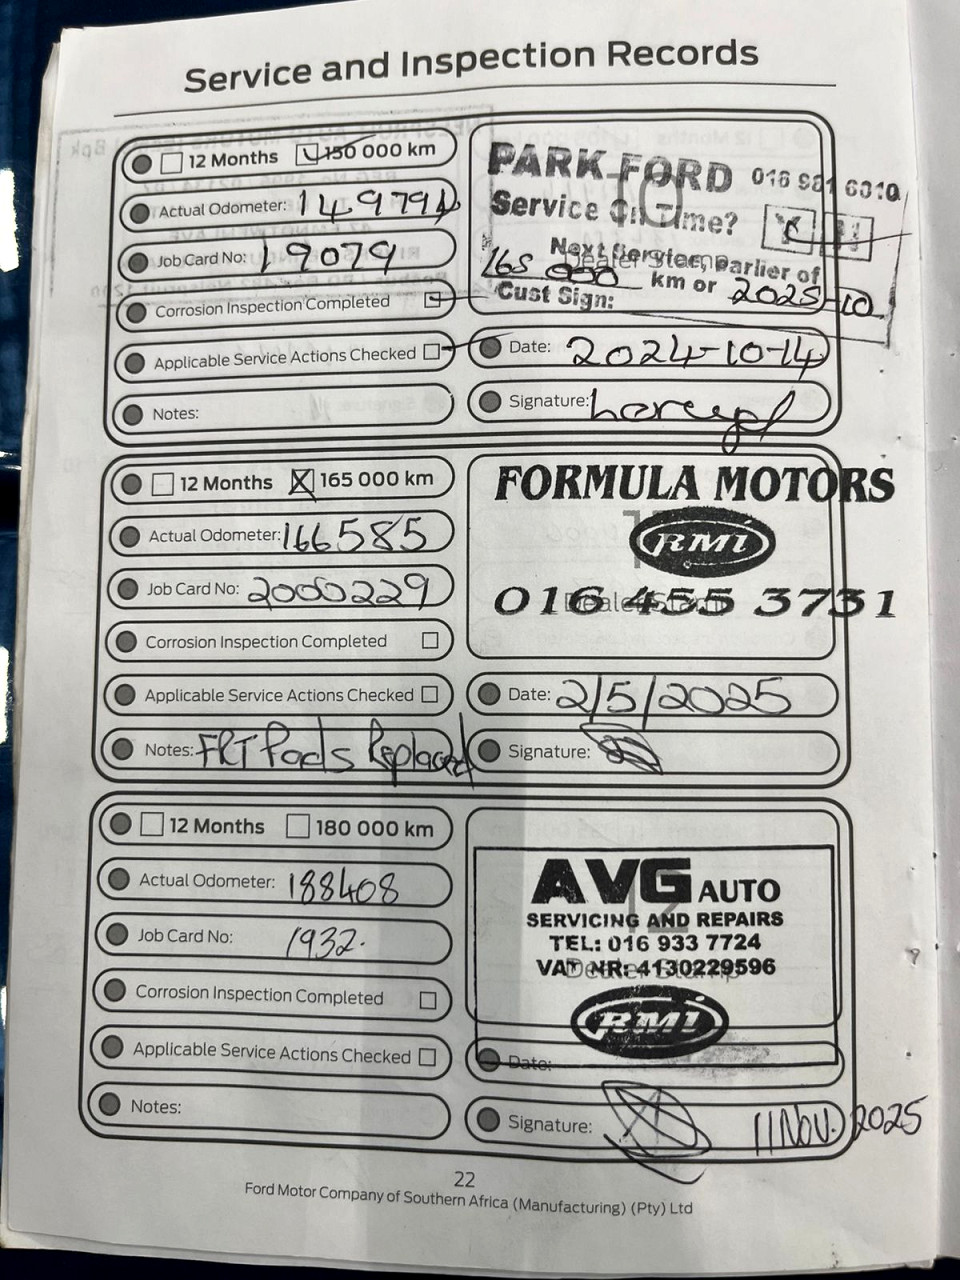 Service and Inspection Records
12 Months 150 000 km
Actual Odometer: 149794
Job Card No: 19079
Corrosion Inspection Completed
Applicable Service Actions Checked
Notes:
PARK FORD 016 981 6010
Service On Time? Y N
Next Service, earlier of
165 000 km or 2025-10
Cust Sign:
Dealer Stamp
Date: 2024-10-14
Signature:
12 Months 165 000 km
Actual Odometer: 166585
Job Card No: 2000229
Corrosion Inspection Completed
Applicable Service Actions Checked
Notes: FRT Pads Replaced
FORMULA MOTORS
RMI
016 455 3731
Dealer Stamp
Date: 2/5/2025
Signature:
12 Months 180 000 km
Actual Odometer: 188408
Job Card No: 1932.
Corrosion Inspection Completed
Applicable Service Actions Checked
Notes:
AVG AUTO
SERVICING AND REPAIRS
TEL: 016 933 7724
VAT NR: 4130229596
Dealer Stamp
RMI
Date:
Signature: 11 Nov. 2025
22
Ford Motor Company of Southern Africa (Manufacturing) (Pty) Ltd